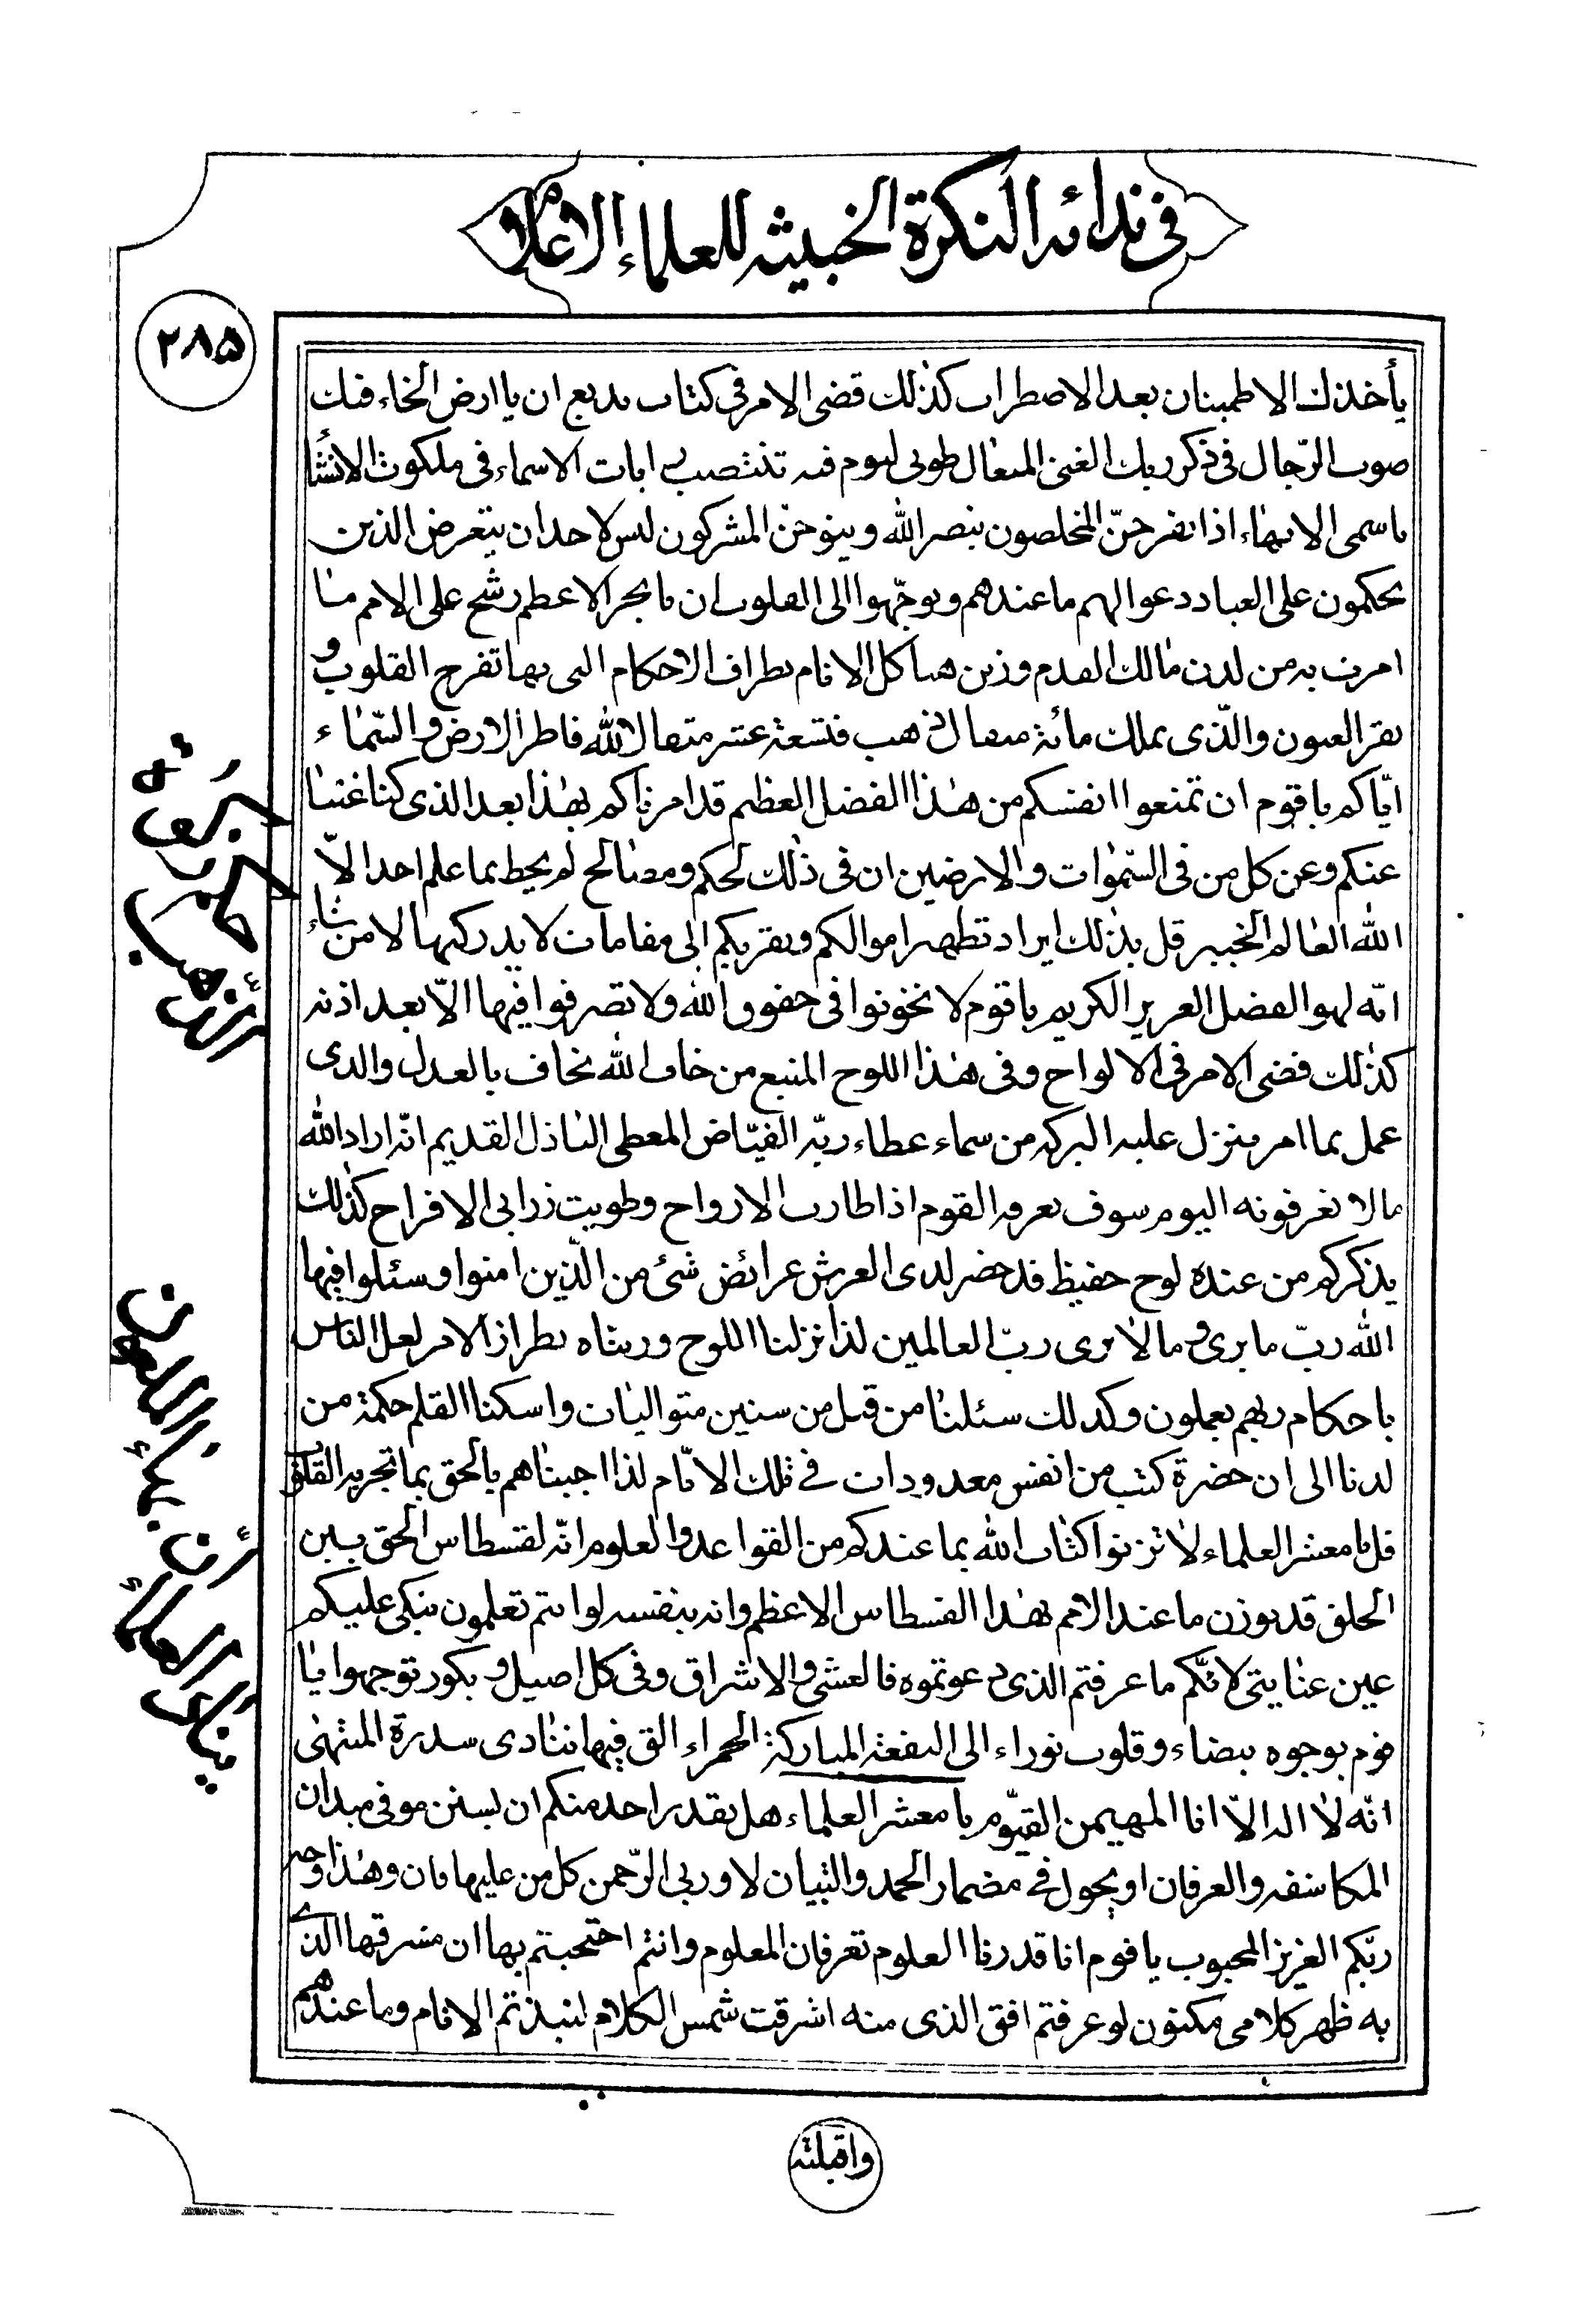 فی ندائه النکرة الخبیثه للعلماء الاعلام
۲۸۵
یأخذك الاطمینان بعد الاضطراب کذٰلك قضی الامر فی کتاب بدیع ان یا ارض الخاء فیك
صوت الرّجال فی ذکر ربك الغنی المتعال طوبی لیوم فیه تنتصب رایات الاسماء فی ملکوت الانشأ
باسمی الابهاء اذا یفرحنّ المخلصون بنصر الله وینوحنّ المشرکون لیس لاحد ان یتعرض الذین
یحکمون علی العباد دعوا لهم ما عندهم وتوجّهوا الی القلوب ان یا بحر الاعظم رشح علی الامم ما
امرت به من لدن مالك القدم وزین هیاکل الانام بطراز الاحکام التی بها تفرح القلوب و
تقر العیون والّذی یملك مائة مثقال ذهب فتسعة عشر مثقالا لله فاطر الارض والسّماء
ایّاکم یا قوم ان تمنعوا انفسکم من هٰذا الفضل العظیم قد امرناکم بهٰذا بعد الذی کنا غنیا
عنکم وعن کل من فی السّمٰوات والارضین ان فی ذٰلك لحکم ومصالح لم یحط بها علم احد الاّ
الله العالم الخبیر قل بذٰلك ایراد تطهیر اموالکم وتقربکم الی مقامات لا یدرکها الا من شاء
انّه لهو الفضل العزیز الکریم یا قوم لا تخونوا فی حقوق الله ولا تصرفوا فیها الاّ بعد اذنه
کذٰلك قضی الامر فی الالواح وفی هٰذا اللوح المنیع من خان الله یخاف بالعدل والذی
عمل بما امر ینزل علیه البرکه من سماء عطاء ربّه الفیّاض المعطی الباذل القدیم انّه اراد الله
ما لا تعرفونه الیوم سوف یعرفه القوم اذا طارت الارواح وطویت زرابی الافراح کذٰلك
یذکرکم من عنده لوح حفیظ قد حضر لدی العرش عرائض شئ من الّذین امنوا وسئلوا فیها
الله ربّ ما یری وما لا یری ربّ العالمین لذا نزلنا اللوح وزیناه بطراز الامر لعل الناس
باحکام ربهم یعملون وکذلك سئلنا من قبل من سنین متوالیات واسکنا القلم حکمة من
لدنا الی ان حضرة کتب من انفس معدودات فی تلك الایّام لذا اجبناهم بالحق بما تحریه القلوب
قل یا معشر العلماء لا تزنوا کتاب الله بما عندکم من القواعد والعلوم انّه لقسطاس الحق بین
الخلق قد یوزن ما عند الامم بهٰذا القسطاس الاعظم وانه بنفسه لو انتم تعلمون تبکی علیکم
عین عنایتی لانّکم ما عرفتم الذی دعوتموه فالعشی والاشراق وفی کل اصیل و بکور توجهوا یا
قوم بوجوه بیضاء وقلوب نوراء الی البقعة المبارکة الحمراء التی فیها تنادی سدرة المنتهیٰ
انّه لا اله الاّ انا المهیمن القیّوم یا معشر العلماء هل یقدر احد منکم ان یستن مو فی میدان
المکاشفه والعرفان او یجول فی مضمار الحمد والتبیان لا وربی الرّحمن کل من علیها فان وهٰذا وجه
ربّکم العزیز المحبوب یا قوم انا قدرنا العلوم لعرفان المعلوم وانتم احتجبتم بها ان مشرقها الذی
به ظهر کلامی مکنون لو عرفتم افق الذی منه اشرقت شمس الکلام لنبذتم الانام وما عندهم
حکم زکوة
الذهب
ینادی العلماء
أن بهاء اللعون
واقبلته